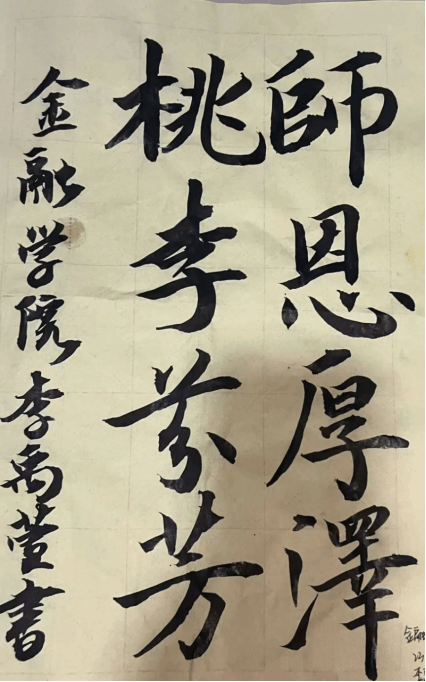 師恩厚澤
桃李芬芳
金融学院李禹萱书